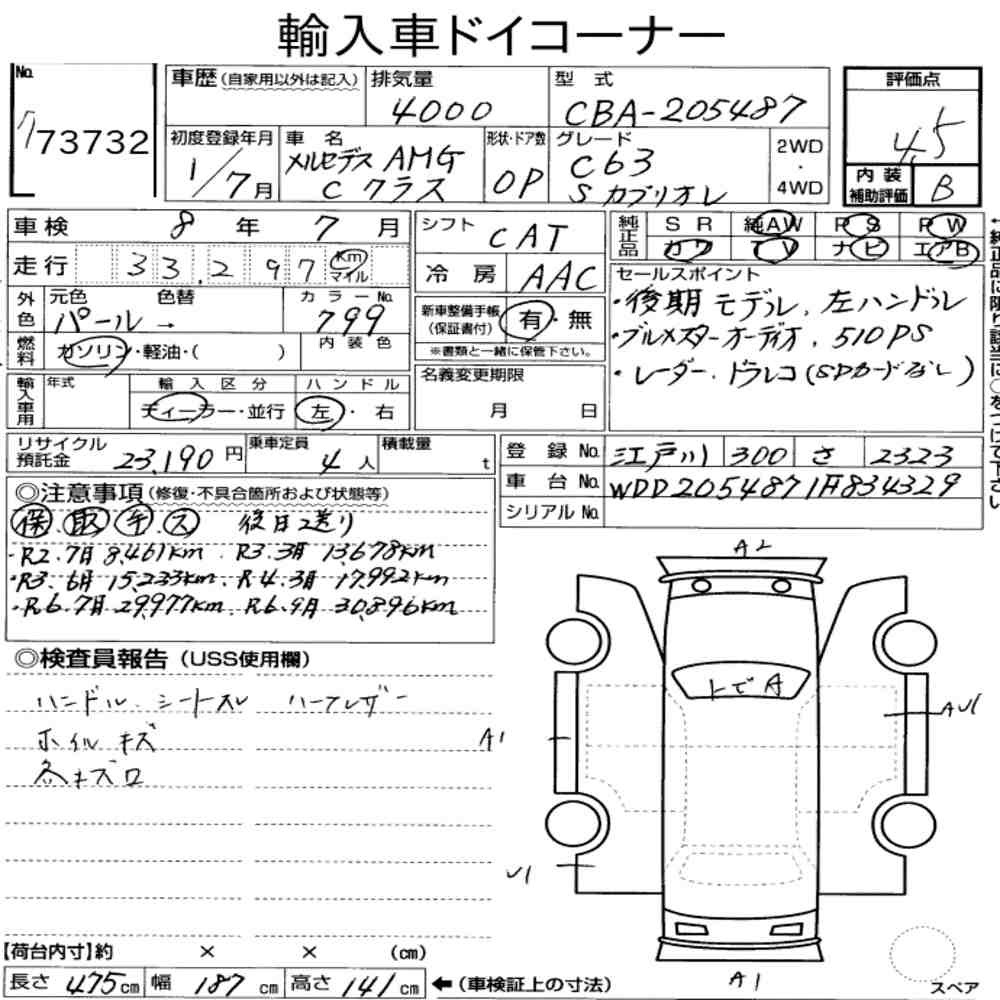 輸入車ドイコーナー
No.
773732
車歴(自家用以外は記入)
排気量
4000
型 式
CBA-205487
評価点
4.5
初度登録年月
1/7月
車 名
メルセデス AMG
C クラス
形状・ドア数
OP
グレード
C63
S カブリオレ
2WD
・
4WD
内 装
補助評価
B
車検 8 年 7 月
走行 33,297 Km マイル
外色
元色 色替
パール →
カラーNo.
799
内 装 色
燃料
ガソリン・軽油・( )
輸入車用
年式
輸 入 区 分
ディーラー・並行
ハ ン ド ル
左・右
シフト
CAT
冷 房
AAC
新車整備手帳
(保証書付)
有・無
※書類と一緒に保管下さい。
名義変更期限
月 日
純正品
SR 純AW PS PW
カワ TV ナビ エアB
セールスポイント
・後期モデル, 左ハンドル
・ブルメスターオーディオ, 510PS
・レーダー, ドラレコ(SDカードなし)
リサイクル
預託金
23,190円
乗車定員
4人
積載量
t
登 録 No. 江戸川 300 さ 2323
車 台 No. WDD2054871F834329
シリアル No.
◎注意事項(修復・不具合箇所および状態等)
保 取 キ ス 後日送り
・R2.7月 8,461km . R3.3月 13,678km
・R3.6月 15,233km . R4.3月 17,992km
・R6.7月 29,977km . R6.9月 30,896km
◎検査員報告(USS使用欄)
ハンドル シートスレ ハーフレザー
ホイルキズ
A2
トビA
A1
AU1
U1
A1
スペア
【荷台内寸】約 × × (cm)
長さ 475cm 幅 187cm 高さ 141cm ←(車検証上の寸法)